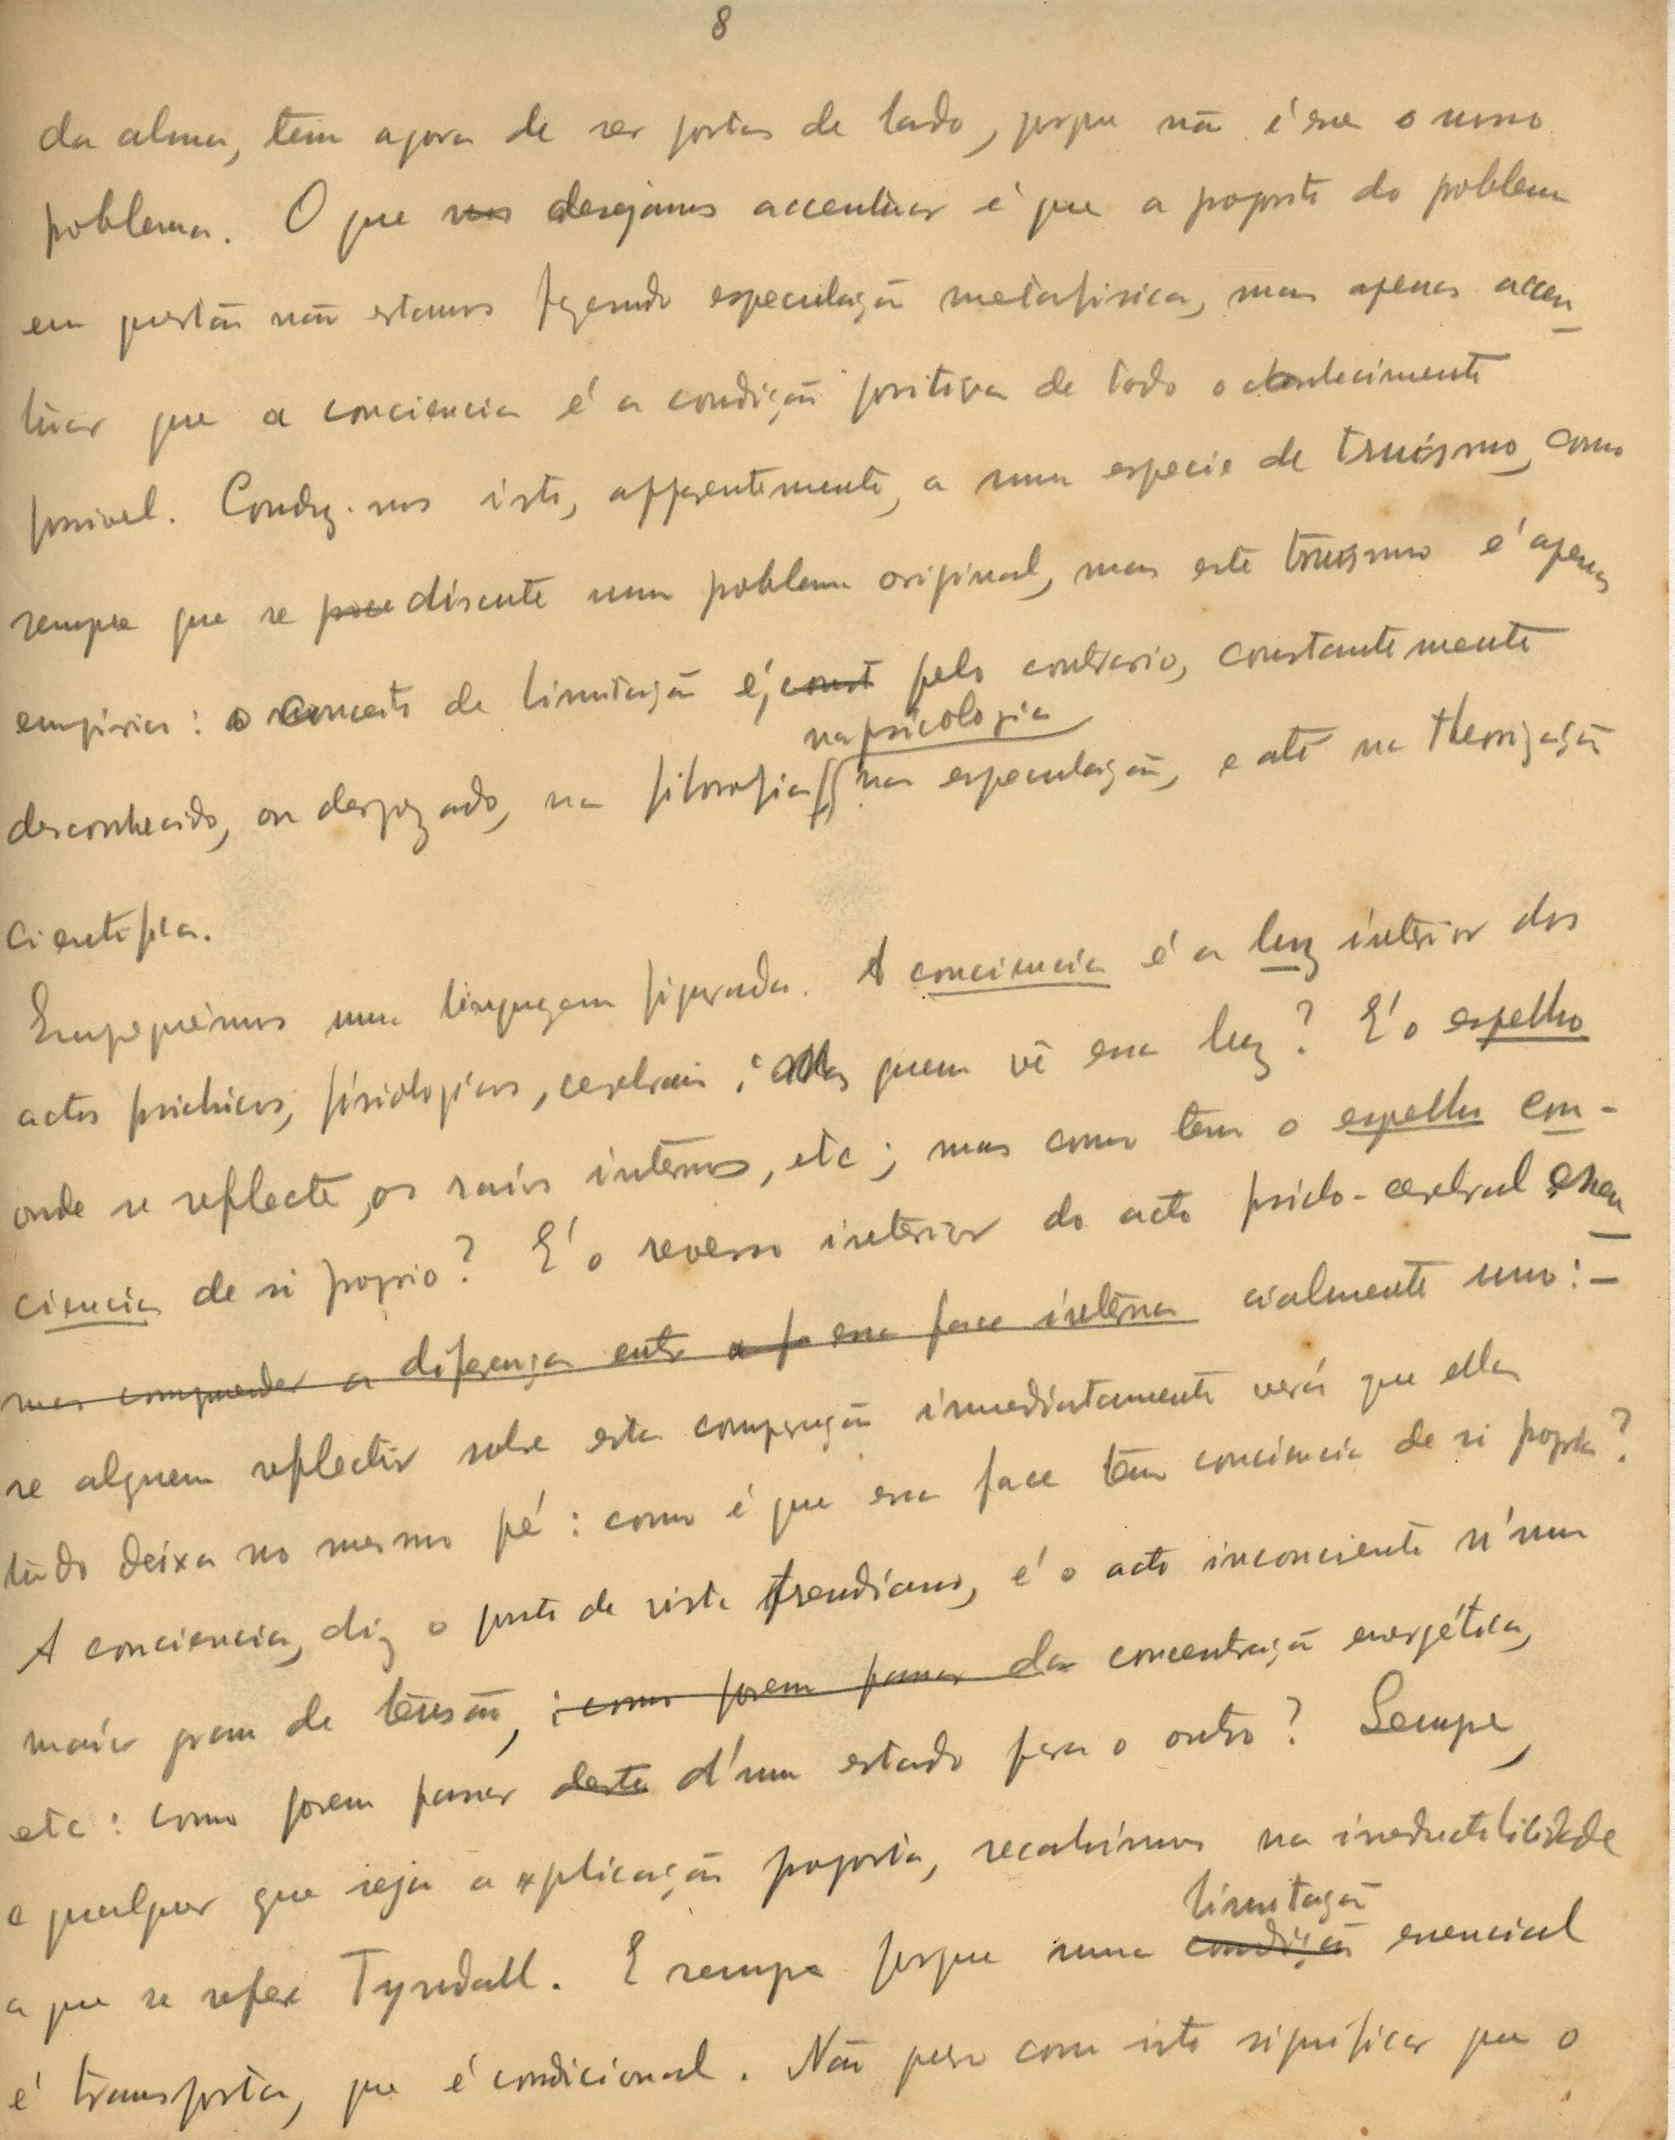 8
da alma, tem agora de ser postas de lado, porque não é esse o nosso
problema. O que nos desejamos accentuar é que a proposito do problema
em questão não estamos fazendo especulação metafisica, mas apenas accen
tuar que a conciencia é a condição positiva de todo o conhecimento
possivel. Conduz-nos isto, apparentemente, a uma especie de truismo, como
sempre que se discute um problema original, mas este truismo é apenas
empirico: o conceito de limitação é, const pelo contrario, constantemente
na psicologia
desconhecido, ou desprezado, na filosofia, na especulação, e até na theorização
cientifica.
Empreguemos uma linguagem figurada. A conciencia é a luz interior dos
actos psichicos, fisiologicos, cerebrais; mas quem vê essa luz? E' o espelho
onde se reflecte, os raios internos, etc; mas como tem o espelho con-
ciencia de si proprio? E' o reverso interior do acto psiclo-cerebral essen
mas comprender a diferença entre a fa essa face interna cialmente uno: -
se alguem reflectir sobre esta comparação immediatamente verá que ella
tudo deixa no mesmo pé: como é que essa face tem conciencia de si propria?
A conciencia, diz o ponto de vista freudiano, é o acto inconciente n'um
maior grau de tensão, ; como porem passar da concentração energética,
etc: como porem passar deste d'um estado para o outro? Sempre,
e qualquer que seja a explicação proposta, recahimos na ireductibilidade
limitação
a que se refere Tyndall. E sempre porque uma condição essencial
é transposta, que é condicional. Não quero com isto significar que o